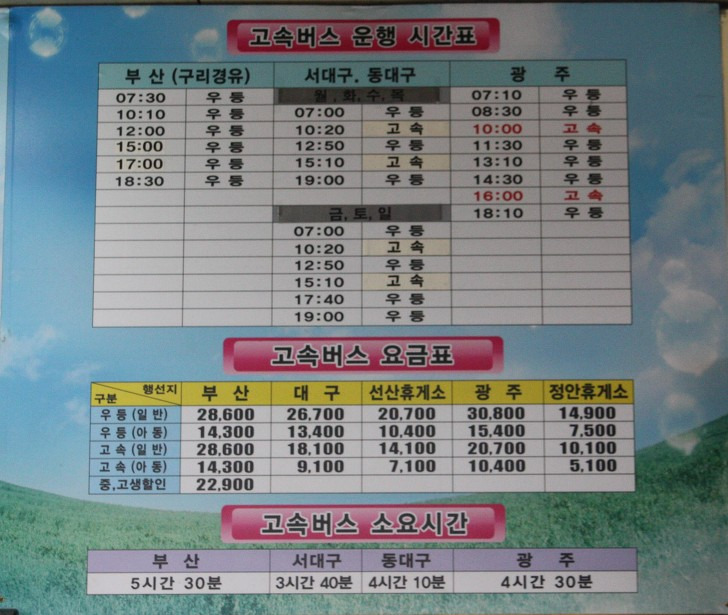 고속버스 운행 시간표
부 산 (구리경유) 서대구. 동대구 광 주
07:30 우 등 월, 화, 수, 목 07:10 우 등
10:10 우 등 07:00 우 등 08:30 우 등
12:00 우 등 10:20 고 속 10:00 고 속
15:00 우 등 12:50 우 등 11:30 우 등
17:00 우 등 15:10 고 속 13:10 우 등
18:30 우 등 19:00 우 등 14:30 우 등
16:00 고 속
금, 토, 일 18:10 우 등
07:00 우 등
10:20 고 속
12:50 우 등
15:10 고 속
17:40 우 등
19:00 우 등
고속버스 요금표
구분 행선지 부 산 대 구 선산휴게소 광 주 정안휴게소
우 등 (일 반) 28,600 26,700 20,700 30,800 14,900
우 등 (아 동) 14,300 13,400 10,400 15,400 7,500
고 속 (일 반) 28,600 18,100 14,100 20,700 10,100
고 속 (아 동) 14,300 9,100 7,100 10,400 5,100
중,고생할인 22,900
고속버스 소요시간
부 산 서대구 동대구 광 주
5시간 30분 3시간 40분 4시간 10분 4시간 30분